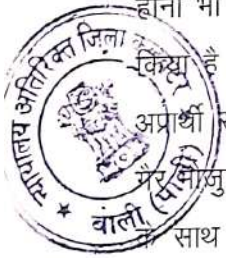 होना भी
किया है
अप्रार्थी
के साथ
न्यायालय अतिरिक्त जिला
बाली (पाली)